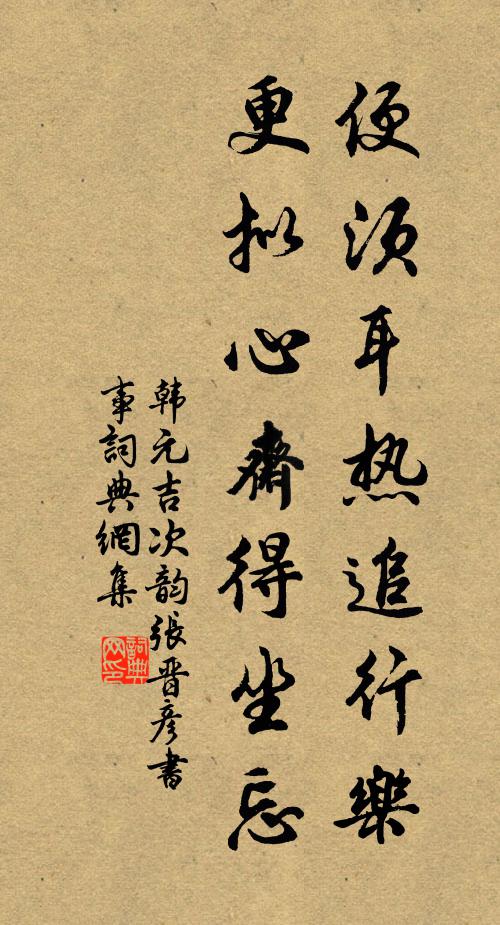 便须耳热追行樂
更拟心齋得坐忘
韩元吉次韵張晋彦書
事詞典網集
詞典
网印